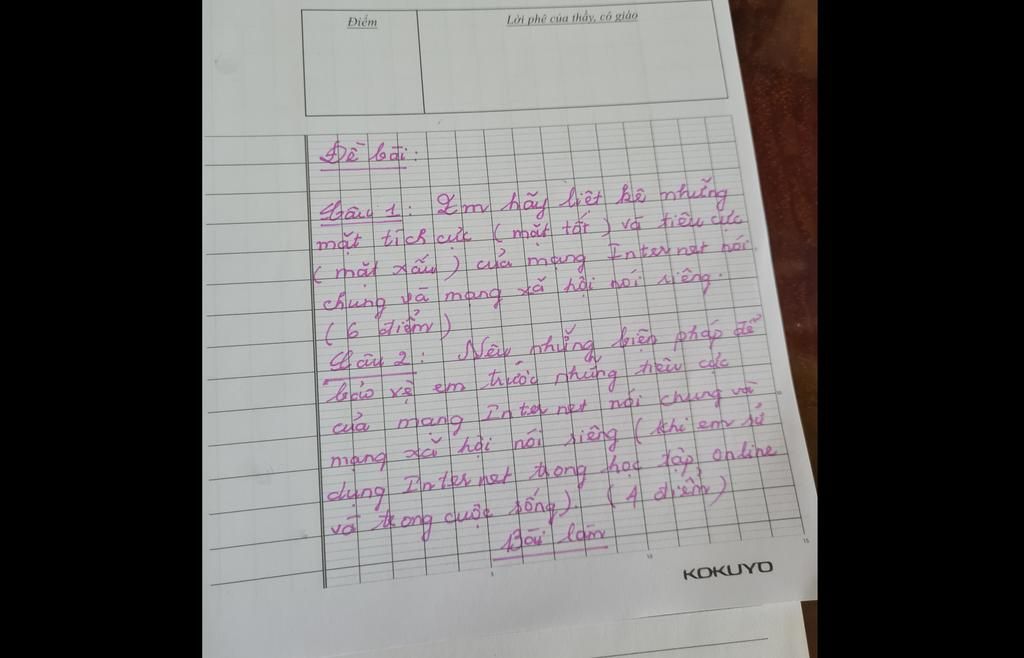 Điểm
Lời phê của thầy, cô giáo
Đề bài:
Câu 1: Em hãy liệt kê những
mặt tích cực (mặt tốt) và tiêu cực
(mặt xấu) của mạng Internet nói
chung và mạng xã hội nói riêng.
(6 điểm)
Câu 2: Nêu những biện pháp để
bảo vệ em trước những tiêu cực
của mạng Internet nói chung và
mạng xã hội nói riêng (khi em sử
dụng Internet trong học tập online
và trong cuộc sống). (4 điểm)
Bài làm
5
10
15
KOKUYO